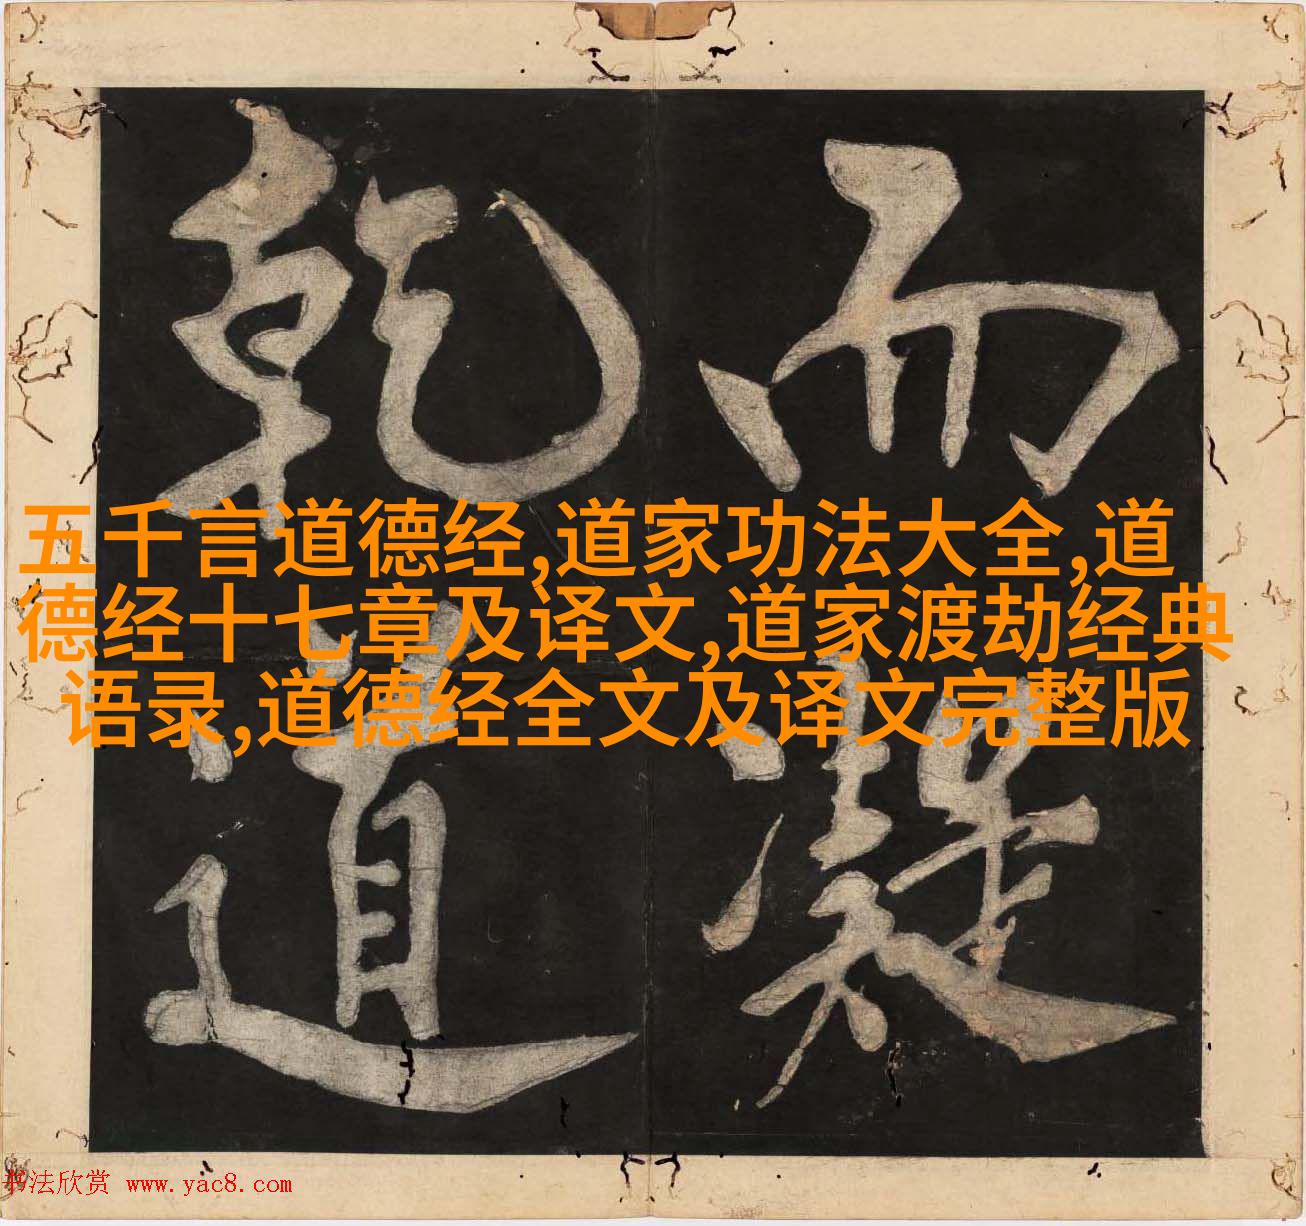 而凝
乾道
五千言道德经,道家功法大全,道
德经十七章及译文,道家渡劫经典
语录,道德经全文及译文完整版
书法欣赏 www.yac8.com